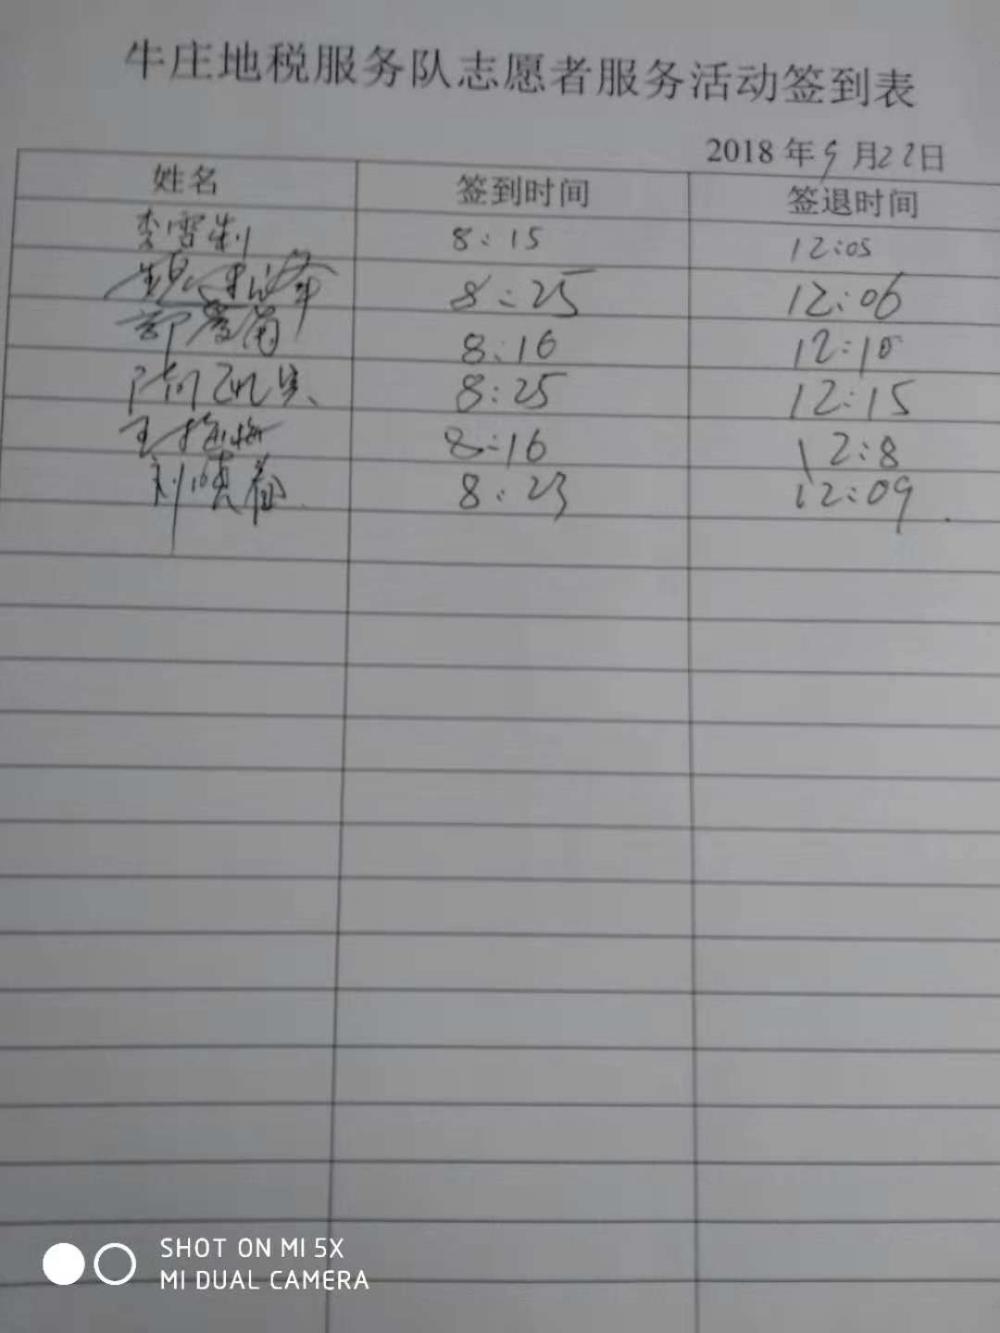 牛庄地税服务队志愿者服务活动签到表
2018年5月22日
姓名 签到时间 签退时间
8:15 12:05
8:25 12:06
8:16 12:10
8:25 12:15
王 8:16 12:8
刘 8:23 12:09
SHOT ON MI 5X
MI DUAL CAMERA